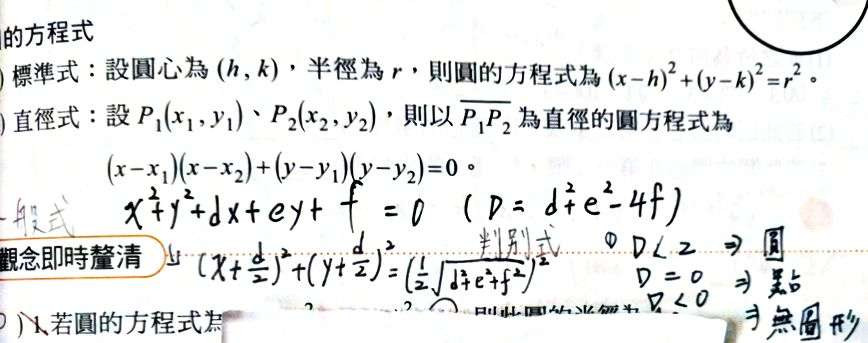 的方程式
)標準式：設圓心為 (h, k)，半徑為 r，則圓的方程式為 (x−h)²+(y−k)²=r²。
)直徑式：設 P₁(x₁, y₁)、P₂(x₂, y₂)，則以 P₁P₂ 為直徑的圓方程式為
(x−x₁)(x−x₂)+(y−y₁)(y−y₂)=0。
一般式 x²+y²+dx+ey+f=0 (D=d²+e²-4f)
觀念即時釐清 (x+d/2)²+(y+d/2)²=(1/2√(d²+e²+f²))² 判別式 ① D<2 ⇒ 圓
D=0 ⇒ 點
D<0 ⇒ 無圖形
)1.若圓的方程式為 則此圓的半徑為